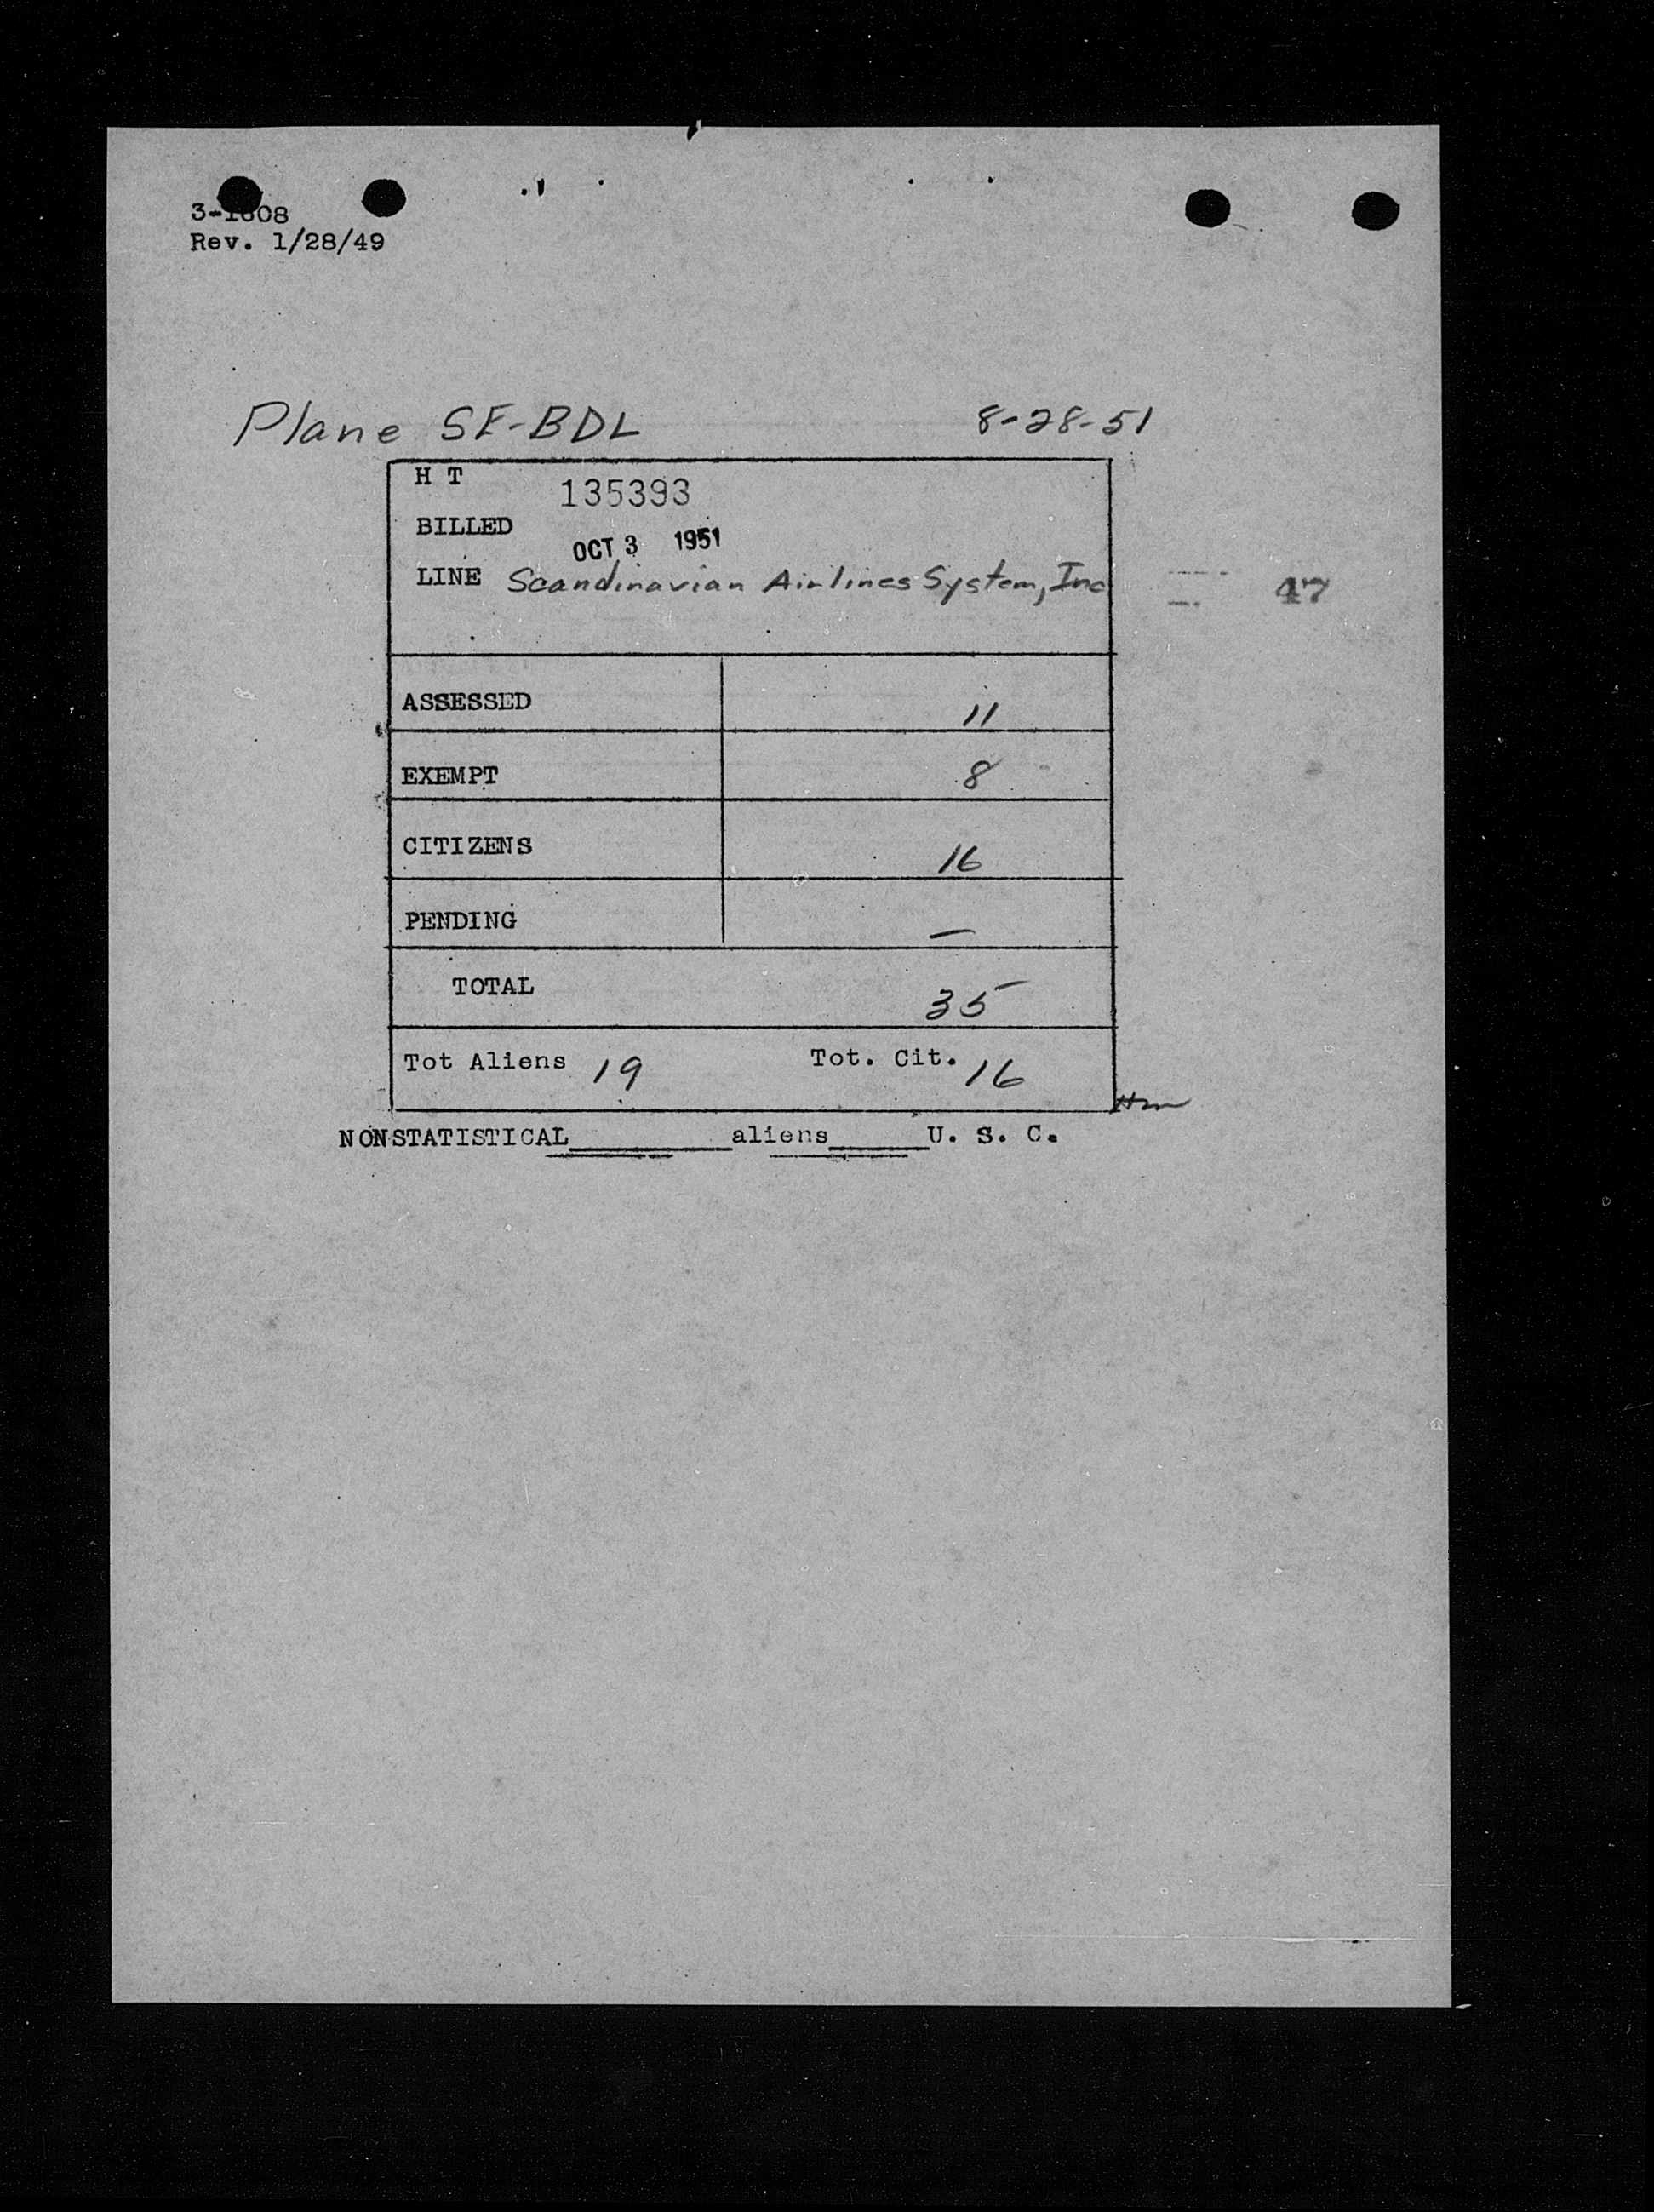 3-1608
Rev. 1/28/49
Plane SE-BDL 8-28-51
H T 135393
BILLED OCT 3 1951
LINE Scandinavian Airlines System, Inc 47
ASSESSED 11
EXEMPT 8
CITIZENS 16
PENDING —
TOTAL 35
Tot Aliens 19 Tot. Cit. 16
NONSTATISTICAL________aliens_____U. S. C.